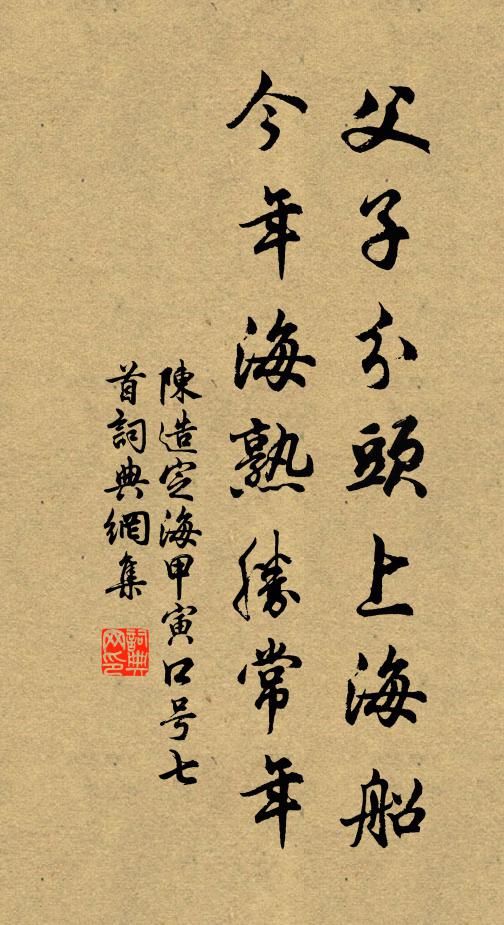 父子分頭上海船
今年海熟勝常年
陳造定海甲寅口号七
首詞典網集
詞典網印